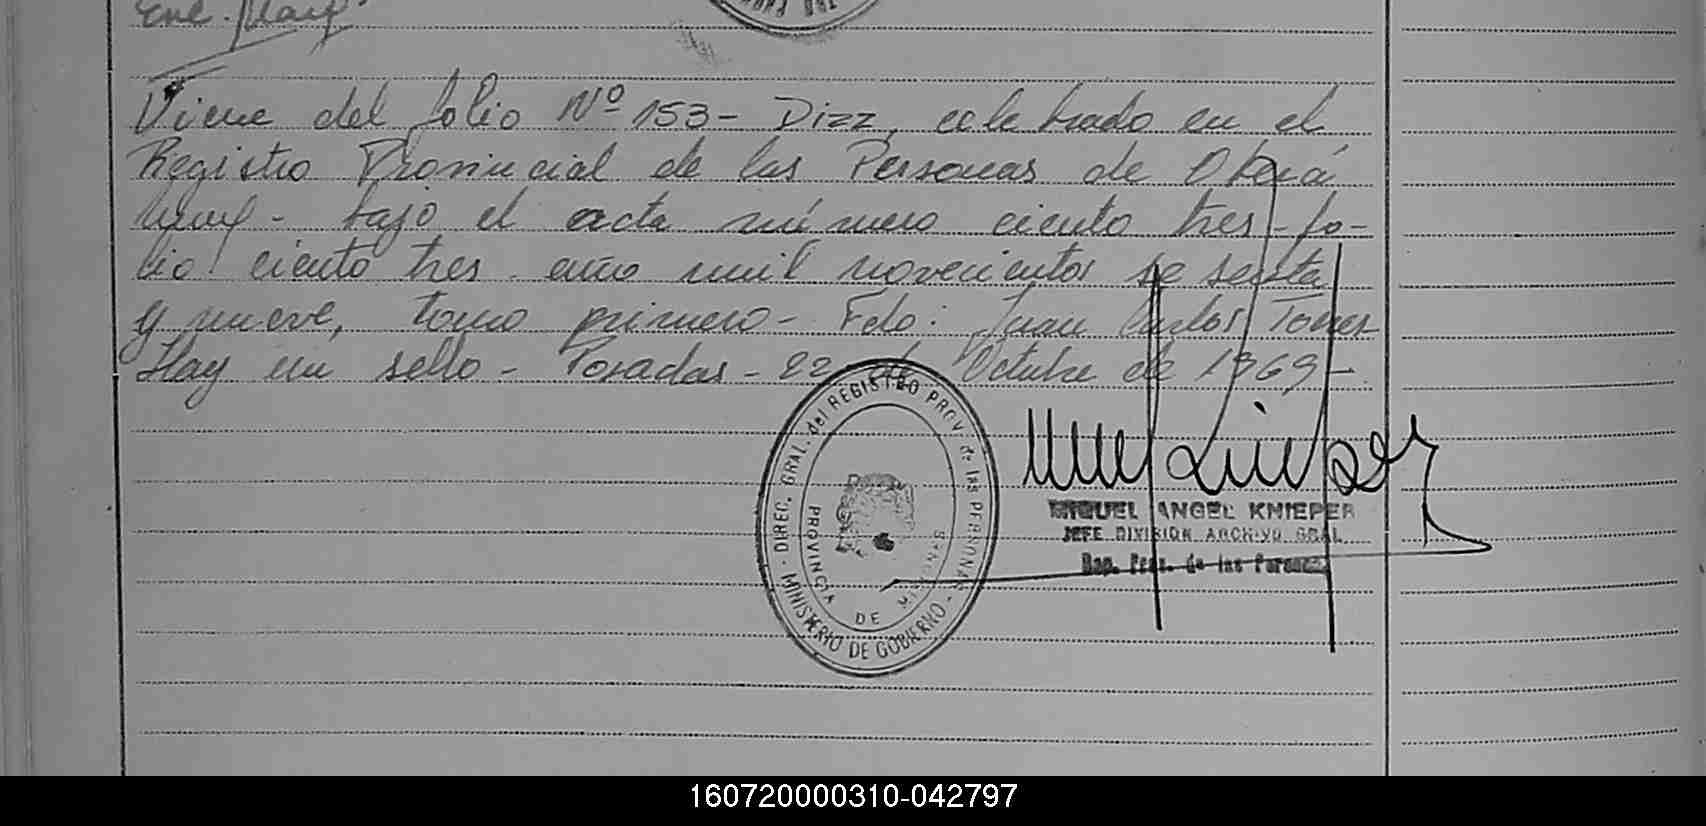 Viene del folio Nº 153 - Dizz, celebrado en el
Registro Provincial de las Personas de Oberá
bajo el acta número ciento tres - fo-
lio ciento tres año mil novecientos sesenta
y nueve, tomo primero - Fdo: Juan Carlos Torres
Hay un sello - Posadas - 22 de Octubre de 1969 -
DIREC. GRAL. del REGISTRO PROV. de las PERSONAS
MINISTERIO DE GOBIERNO
PROVINCIA DE MISIONES
MIGUEL ANGEL KNIEPER
JEFE DIVISION ARCHIVO GRAL.
de las
160720000310-042797